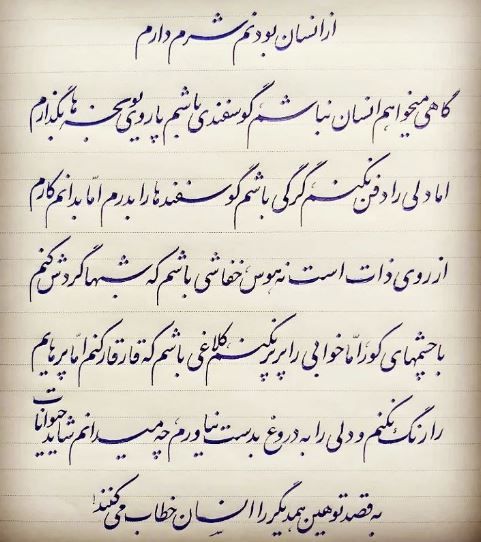 از انسان بودنم شرم دارم
گاهی میخواهم انسان نباشم گوسفندی باشم پا روی یونجه ها بگذارم
اما دلی را دفن نکنم، گرگی باشم گوسفندها را بدرم امّا بدانم کارم
از روی ذات است نه هوس، خفاشی باشم که شبها گردش کنم
با چشمهای کور، امّا خوابی را پرپر نکنم، کلاغی باشم که قارقار کنم اما پرهایم
را رنگ نکنم و دلی را به دروغ بدست نیاورم، چه میدانم شاید حیوانات
به قصد توهین همدیگر را انسان خطاب می کنند!